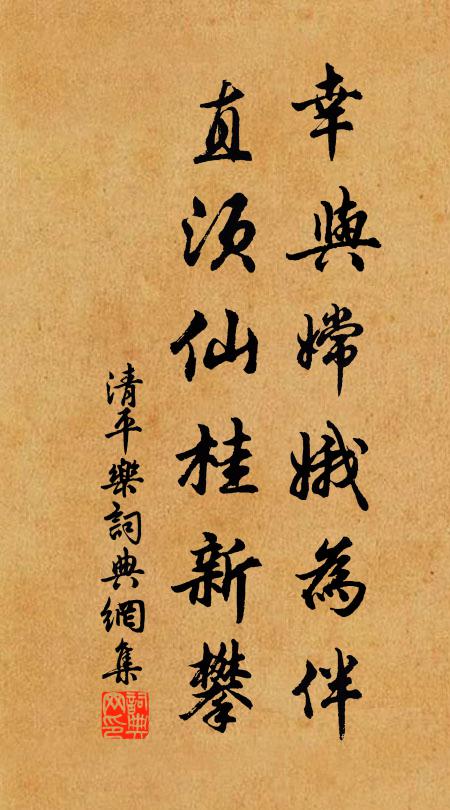 幸與嫦娥為伴
直須仙桂新攀
清平樂詞典網集
詞典網印